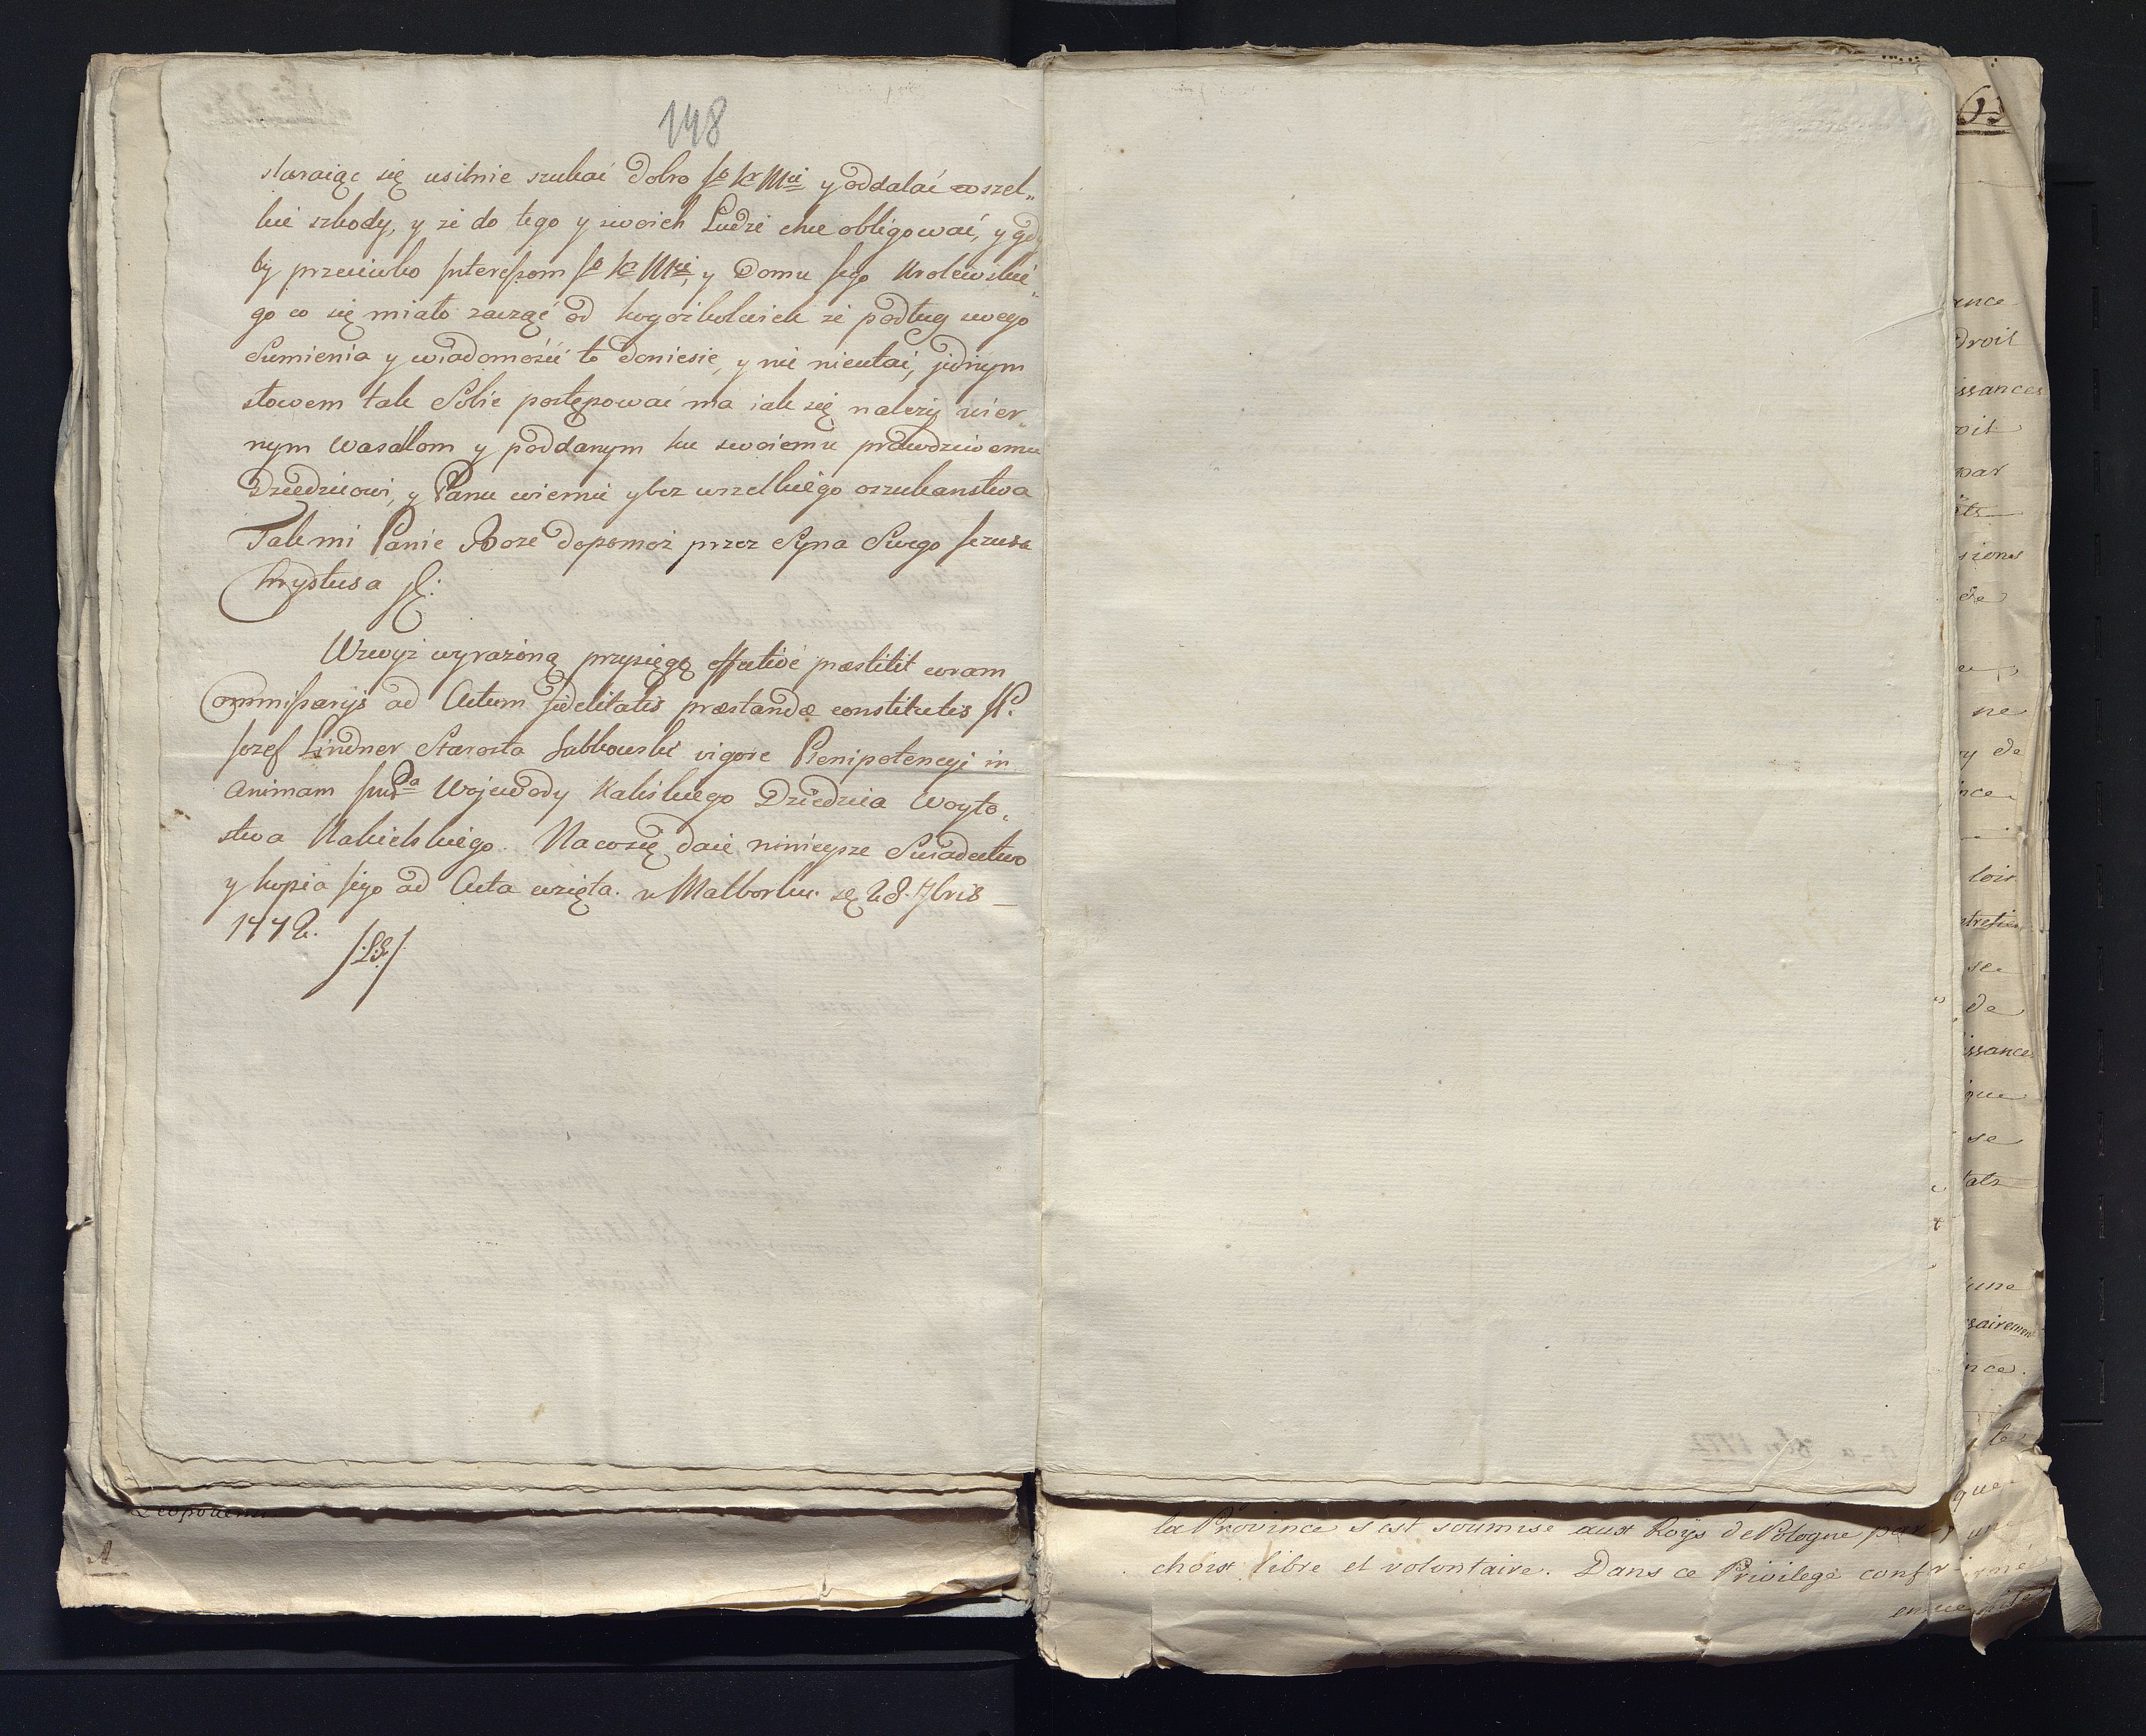 148
staraiąc się usilnie szukać dobro Jo Kr Mci y oddalać wszel„
kie szkody, y że do tego y swoich Ludzi chce obligować, y gdy
by przeciwko Interessom Jo Kr Mci, y Domu Jego Krolewskie„
go co się miało zacząć od kogożkolwiek że podług swego
Sumienia y wiadomości to doniesie, y nic nieutai, jednym
słowem tak Sobie postępować ma iak się należy wier„
nym Wasallom y poddanym ku swoiemu prawdziwemu
Dziedzicowi, y Panu wiernie y bez wszelkiego oszukanstwa
Tak mi Panie Boże dopomoż przez Syna Swego Jezusa
Chrystusa
Wzwyż wyrażoną przysięgę effective præstitit coram
Commissarijs ad Actum fidelitatis præstandæ constitutis JP.
Jozef Lindner Starosta Jabłowski vigore Plenipotencyi in
Animam Wojewody Kaliskiego Dziedzica Woyto„
stwa Nakielskiego. Na co się daie ninieysze Swiadectwo
y kopia Jego ad Acta wzięta. w Malborku. 28. 7bris
1772.
/:LS:/
la Province s'est soumise aux Roys de Pologne par
choix libre et volontaire. Dans ce Privilege conf
ance
droit
issances
roit
par
sions
de
ne
de
nce
loix
se
de
issance
que
se
tats
une
sairement
nce.
le
que